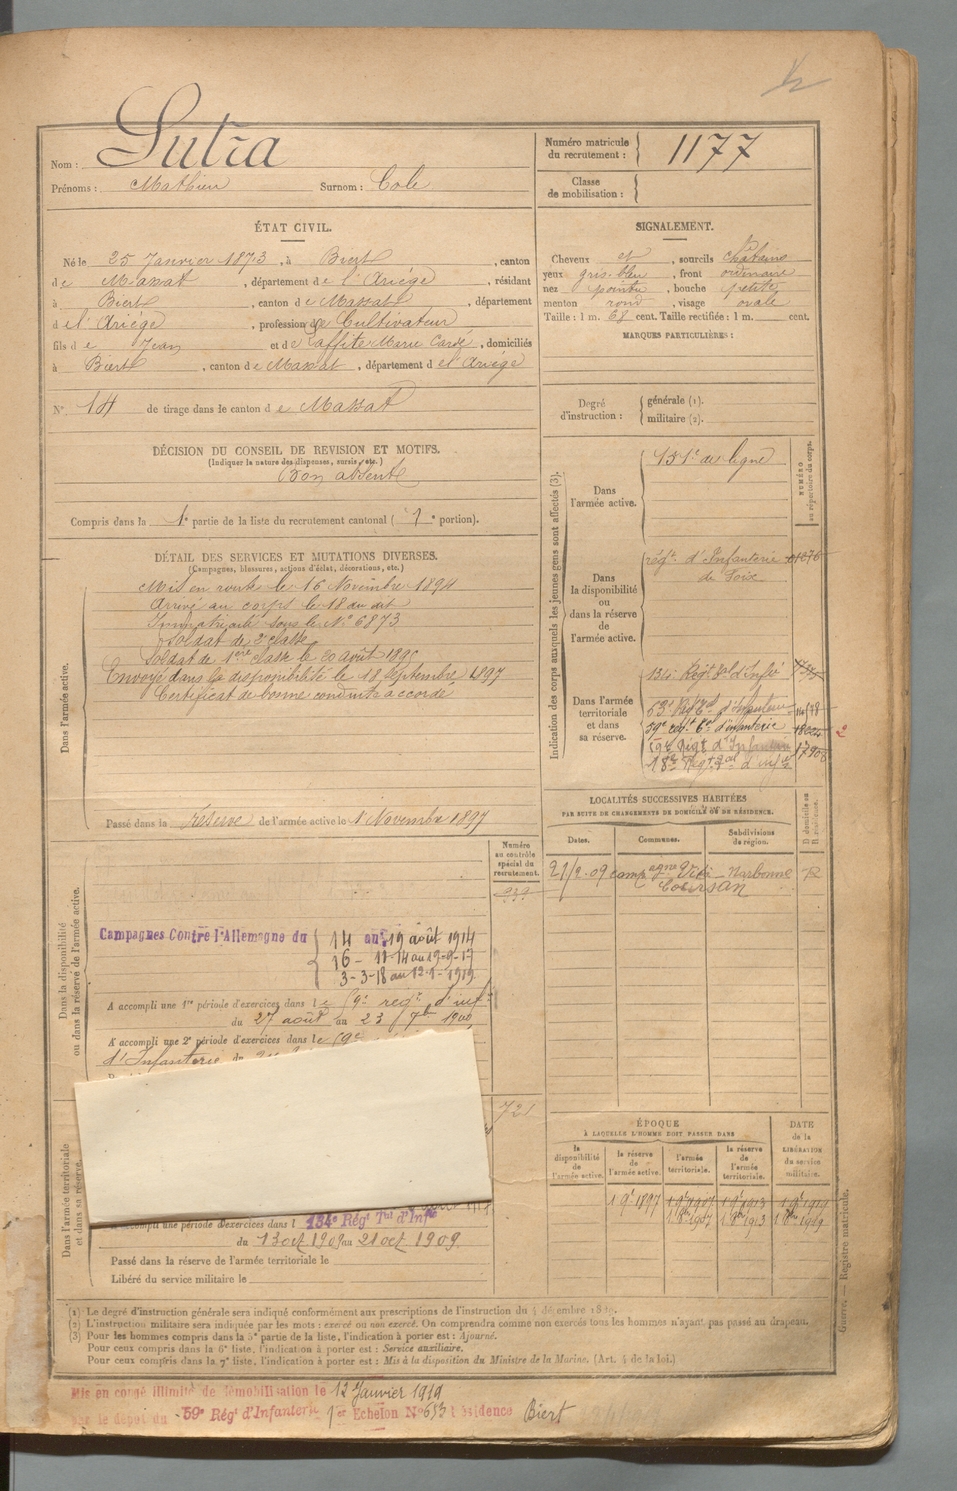 Nom : Sutra
Prénoms : Mathieu Surnom : Cole
Numéro matricule du recrutement : 1177
Classe de mobilisation :
ÉTAT CIVIL.
Né le 25 Janvier 1873, à Biert, canton
de Massat, département de l'Ariége, résidant
à Biert, canton de Massat, département
de l'Ariége, profession de Cultivateur
fils de Jean et de Laffite Marie, domiciliés
à Biert, canton de Massat, département de l'Ariége
N° 14 de tirage dans le canton de Massat
SIGNALEMENT.
Cheveux et, sourcils Châtains
yeux gris-bleu, front ordinaire
nez pointu, bouche petite
menton rond, visage ovale
Taille : 1 m. 68 cent. Taille rectifiée : 1 m. cent.
MARQUES PARTICULIÈRES :
Degré d'instruction : générale (1).
militaire (2).
DÉCISION DU CONSEIL DE REVISION ET MOTIFS.
(Indiquer la nature des dispenses, sursis, etc.)
Bon absent
Compris dans la 1e partie de la liste du recrutement cantonal ( 1e portion).
DÉTAIL DES SERVICES ET MUTATIONS DIVERSES.
(Campagnes, blessures, actions d'éclat, décorations, etc.)
Dans l'armée active.
Mis en route le 16 Novembre 1894
Arrivé au corps le 18 du dit
Immatriculé sous le N° 6873
Soldat de 2e classe
Soldat de 1ère classe le 20 août 1895
Envoyé dans la disponibilité le 18 Septembre 1897
Certificat de bonne conduite accordé
Passé dans la réserve de l'armée active le 1 Novembre 1897
Indication des corps auxquels les jeunes gens sont affectés (3).
NUMÉRO au répertoire du corps.
Dans l'armée active.
151e de ligne
Dans la disponibilité ou dans la réserve de l'armée active.
régt. d'Infanterie 01676
de Foix
Dans l'armée territoriale et dans sa réserve.
134e Régt Tal d'Infie
53e Régt d'Infanterie
59e régt d'infanterie 18024 2
59e Régt d'Infanterie 17908
18e Régt d'Infie
LOCALITÉS SUCCESSIVES HABITÉES
PAR SUITE DE CHANGEMENTS DE DOMICILE OU DE RÉSIDENCE.
Dates. Communes. Subdivisions de région. D domicile ou R résidence.
21/2-09 Narbonne R
Coursan
Dans la disponibilité ou dans la réserve de l'armée active.
Numéro au contrôle spécial du recrutement.
939
Campagnes Contre l'Allemagne du 14 au 19 août 1914
16-11-14 au 19-9-17
3-3-18 au 12-1-1919
A accompli une 1re période d'exercices dans le 59e régt d'inf
du 27 août au 23 7bre 1900
A accompli une 2e période d'exercices dans le 59e
d'Infanterie du
721
Dans l'armée territoriale et dans sa réserve.
A accompli une période d'exercices dans l 134e Régt Tal d'Infie
du 13 oct 1909 au 21 oct 1909
Passé dans la réserve de l'armée territoriale le
Libéré du service militaire le
ÉPOQUE
À LAQUELLE L'HOMME DOIT PASSER DANS
la disponibilité de l'armée active. la réserve de l'armée active. l'armée territoriale. la réserve de l'armée territoriale.
DATE de la LIBÉRATION du service militaire.
1 9e 1897 1 9e 1907 1 9e 1913 1 9e 1919
1 8bre 1907 1 8bre 1913 1 8bre 1919
(1) Le degré d'instruction générale sera indiqué conformément aux prescriptions de l'instruction du 4 décembre 1889.
(2) L'instruction militaire sera indiquée par les mots : exercé ou non exercé. On comprendra comme non exercés tous les hommes n'ayant pas passé au drapeau.
(3) Pour les hommes compris dans la 5e partie de la liste, l'indication à porter est : Ajourné.
Pour ceux compris dans la 6e liste, l'indication à porter est : Service auxiliaire.
Pour ceux compris dans la 7e liste, l'indication à porter est : Mis à la disposition du Ministre de la Marine. (Art. 4 de la loi.)
Guerre. — Registre matricule.
Mis en congé illimité de démobilisation le 12 Janvier 1919
par le dépôt du 59e Régt d'Infanterie 1er Echelon N° 653 Résidence Biert